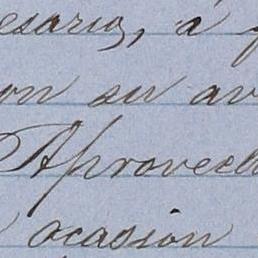 esario, á
on su av
Aprovech
ocasion